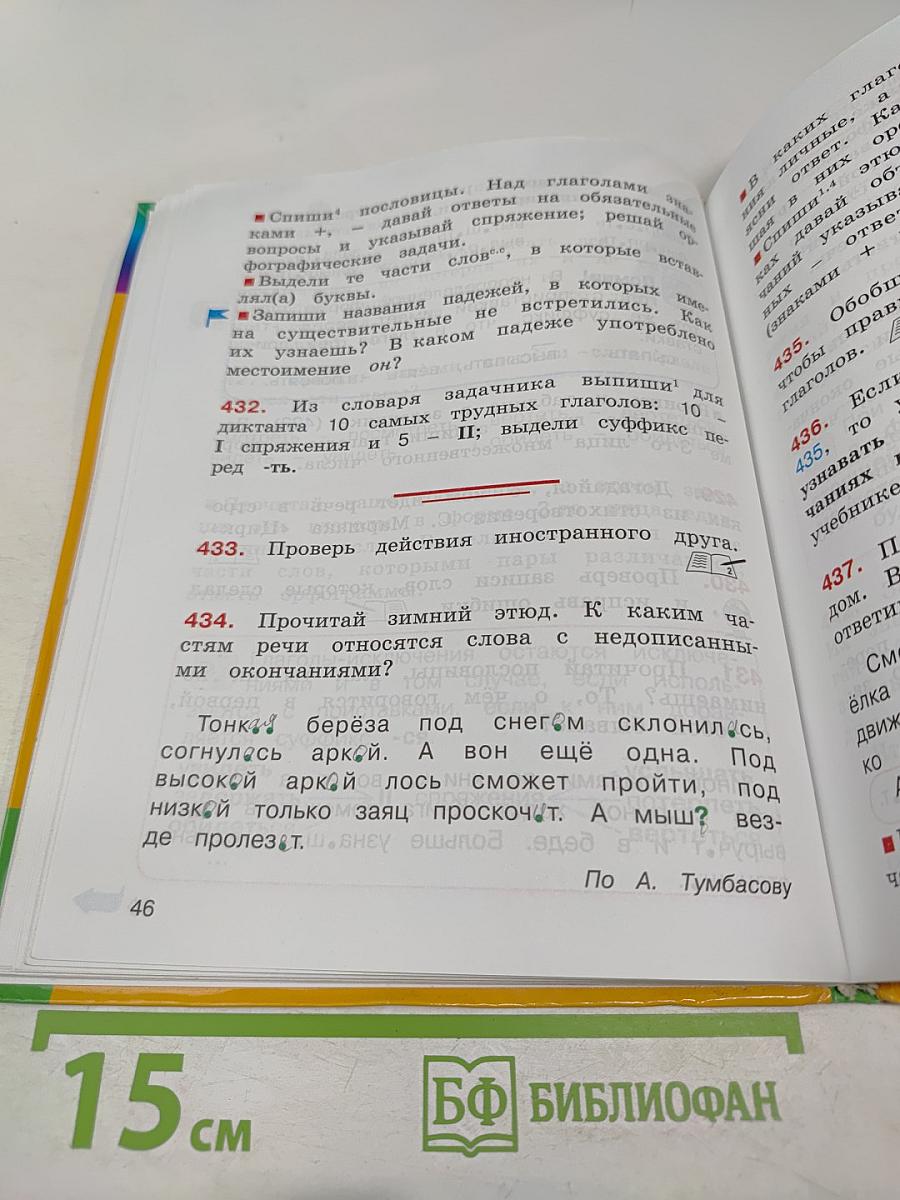 ■ Спиши⁴ пословицы. Над глаголами зна-
ками +, – давай ответы на обязательные
вопросы и указывай спряжение; решай ор-
фографические задачи.
■ Выдели те части слов с.с, в которые встав-
лял(а) буквы.
■ Запиши названия падежей, в которых име-
на существительные не встретились. Как
их узнаешь? В каком падеже употреблено
местоимение он?
432. Из словаря задачника выпиши¹ для
диктанта 10 самых трудных глаголов: 10 –
I спряжения и 5 – II; выдели суффикс пе-
ред -ть.
433. Проверь действия иностранного друга.
2
434. Прочитай зимний этюд. К каким ча-
стям речи относятся слова с недописанны-
ми окончаниями?
Тонкая берёза под снегом склонилась,
согнулась аркой. А вон ещё одна. Под
высокой аркой лось сможет пройти, под
низкой только заяц проскочит. А мыш? вез-
де пролез.т.
По А. Тумбасову
46
■ В каких глаго
ния личные, а
ясни ответ. Ка
шая в них ор
■ Спиши¹·⁴ этю
ках давай об
чаний указыва
ных – отве
(знаками +
435. Обобщ
чтобы прав
глаголов.
436. Если
435, то у
узнавать
чаниях
учебнике
437. П
дом. В
ответи
Смо
ёлка
движ
ко
15 см
БФ БИБЛИОФАН